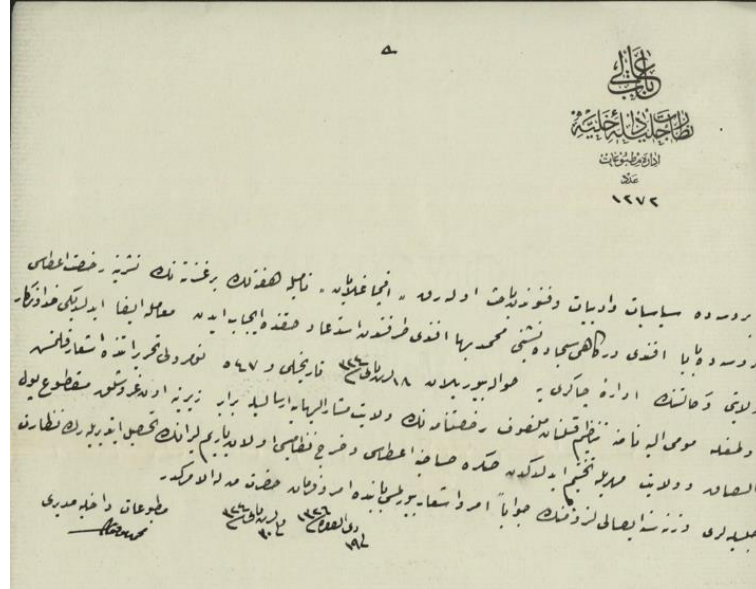 باب عالی
نظارت جلیلهٔ داخلیه
ادارهٔ مطبوعات
عدد
١٢٧٢
بروسه ده سیاسیات وادبیات وفنوندن باحث اوله رق نامیله هفته لك برغزته نك نشرینه رخصت اعطاسی
بروسه ده بابا افندی درکاهی سجاده نشینی محمد بها افندی طرفندن استدعا و حقنده ایجاب ایدن معامله ایفا ایدلدیکی خداوندکار
ولایتی وکالتنك ادارهٔ چاکری یه حواله بیوریلان ١٨ تاریخلی و ٥٤٧ نومرولی تحریراتنده اشعار قلنمش
اولمغله مومی الیه نامنه تنظیم قلنان ملفوف رخصتنامه نك ولایت مشارالیهایه ارسالیله برابر زیرینه اون غروشلق مقطوع پول
الصاق و ولایت مهریله تختیم ایدلدکدن صکره صاحبنه اعطاسی وخرج نظامیسی اولان یاریم لیرانك تحصیل ایتدیریله رك نظارت
جلیله لری وزنه سنه ایصالی لزومنك جواباً امر و اشعار بیورلمسی بابنده امر وفرمان حضرت من له الامرکدر
ذی القعده ١٣٢٦
مطبوعات داخلیه مدیری